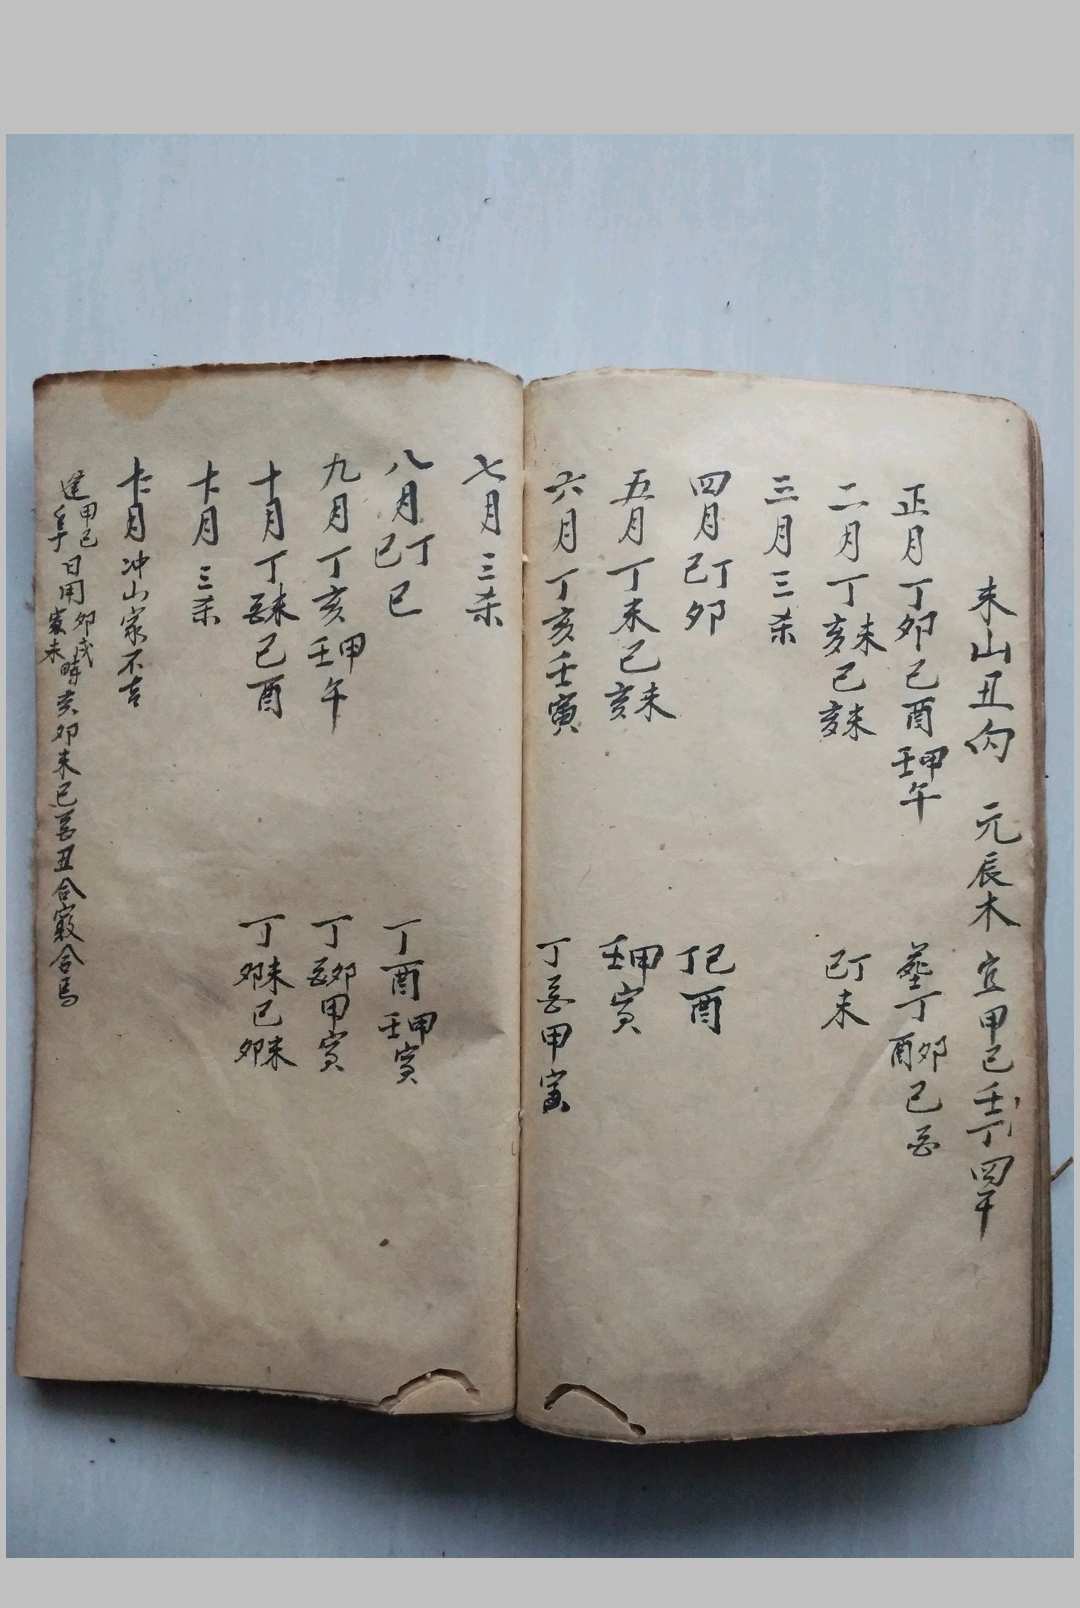 未山丑向 元辰木 宜甲己壬丁四干
正月丁卯己酉壬甲午 葬丁酉卯己
二月丁亥未己亥未 己丁未
三月三杀
四月己丁卯 丁己酉
五月丁未己亥未 壬甲寅
六月丁亥壬寅 丁甲寅
七月三杀
八月己丁巳 丁酉壬甲寅
九月丁亥壬甲午 丁卯甲寅
十月丁未己酉 丁卯未己卯未
十月三杀
十月冲山家不吉
甲己日用卯戌未時亥卯未巳丑合